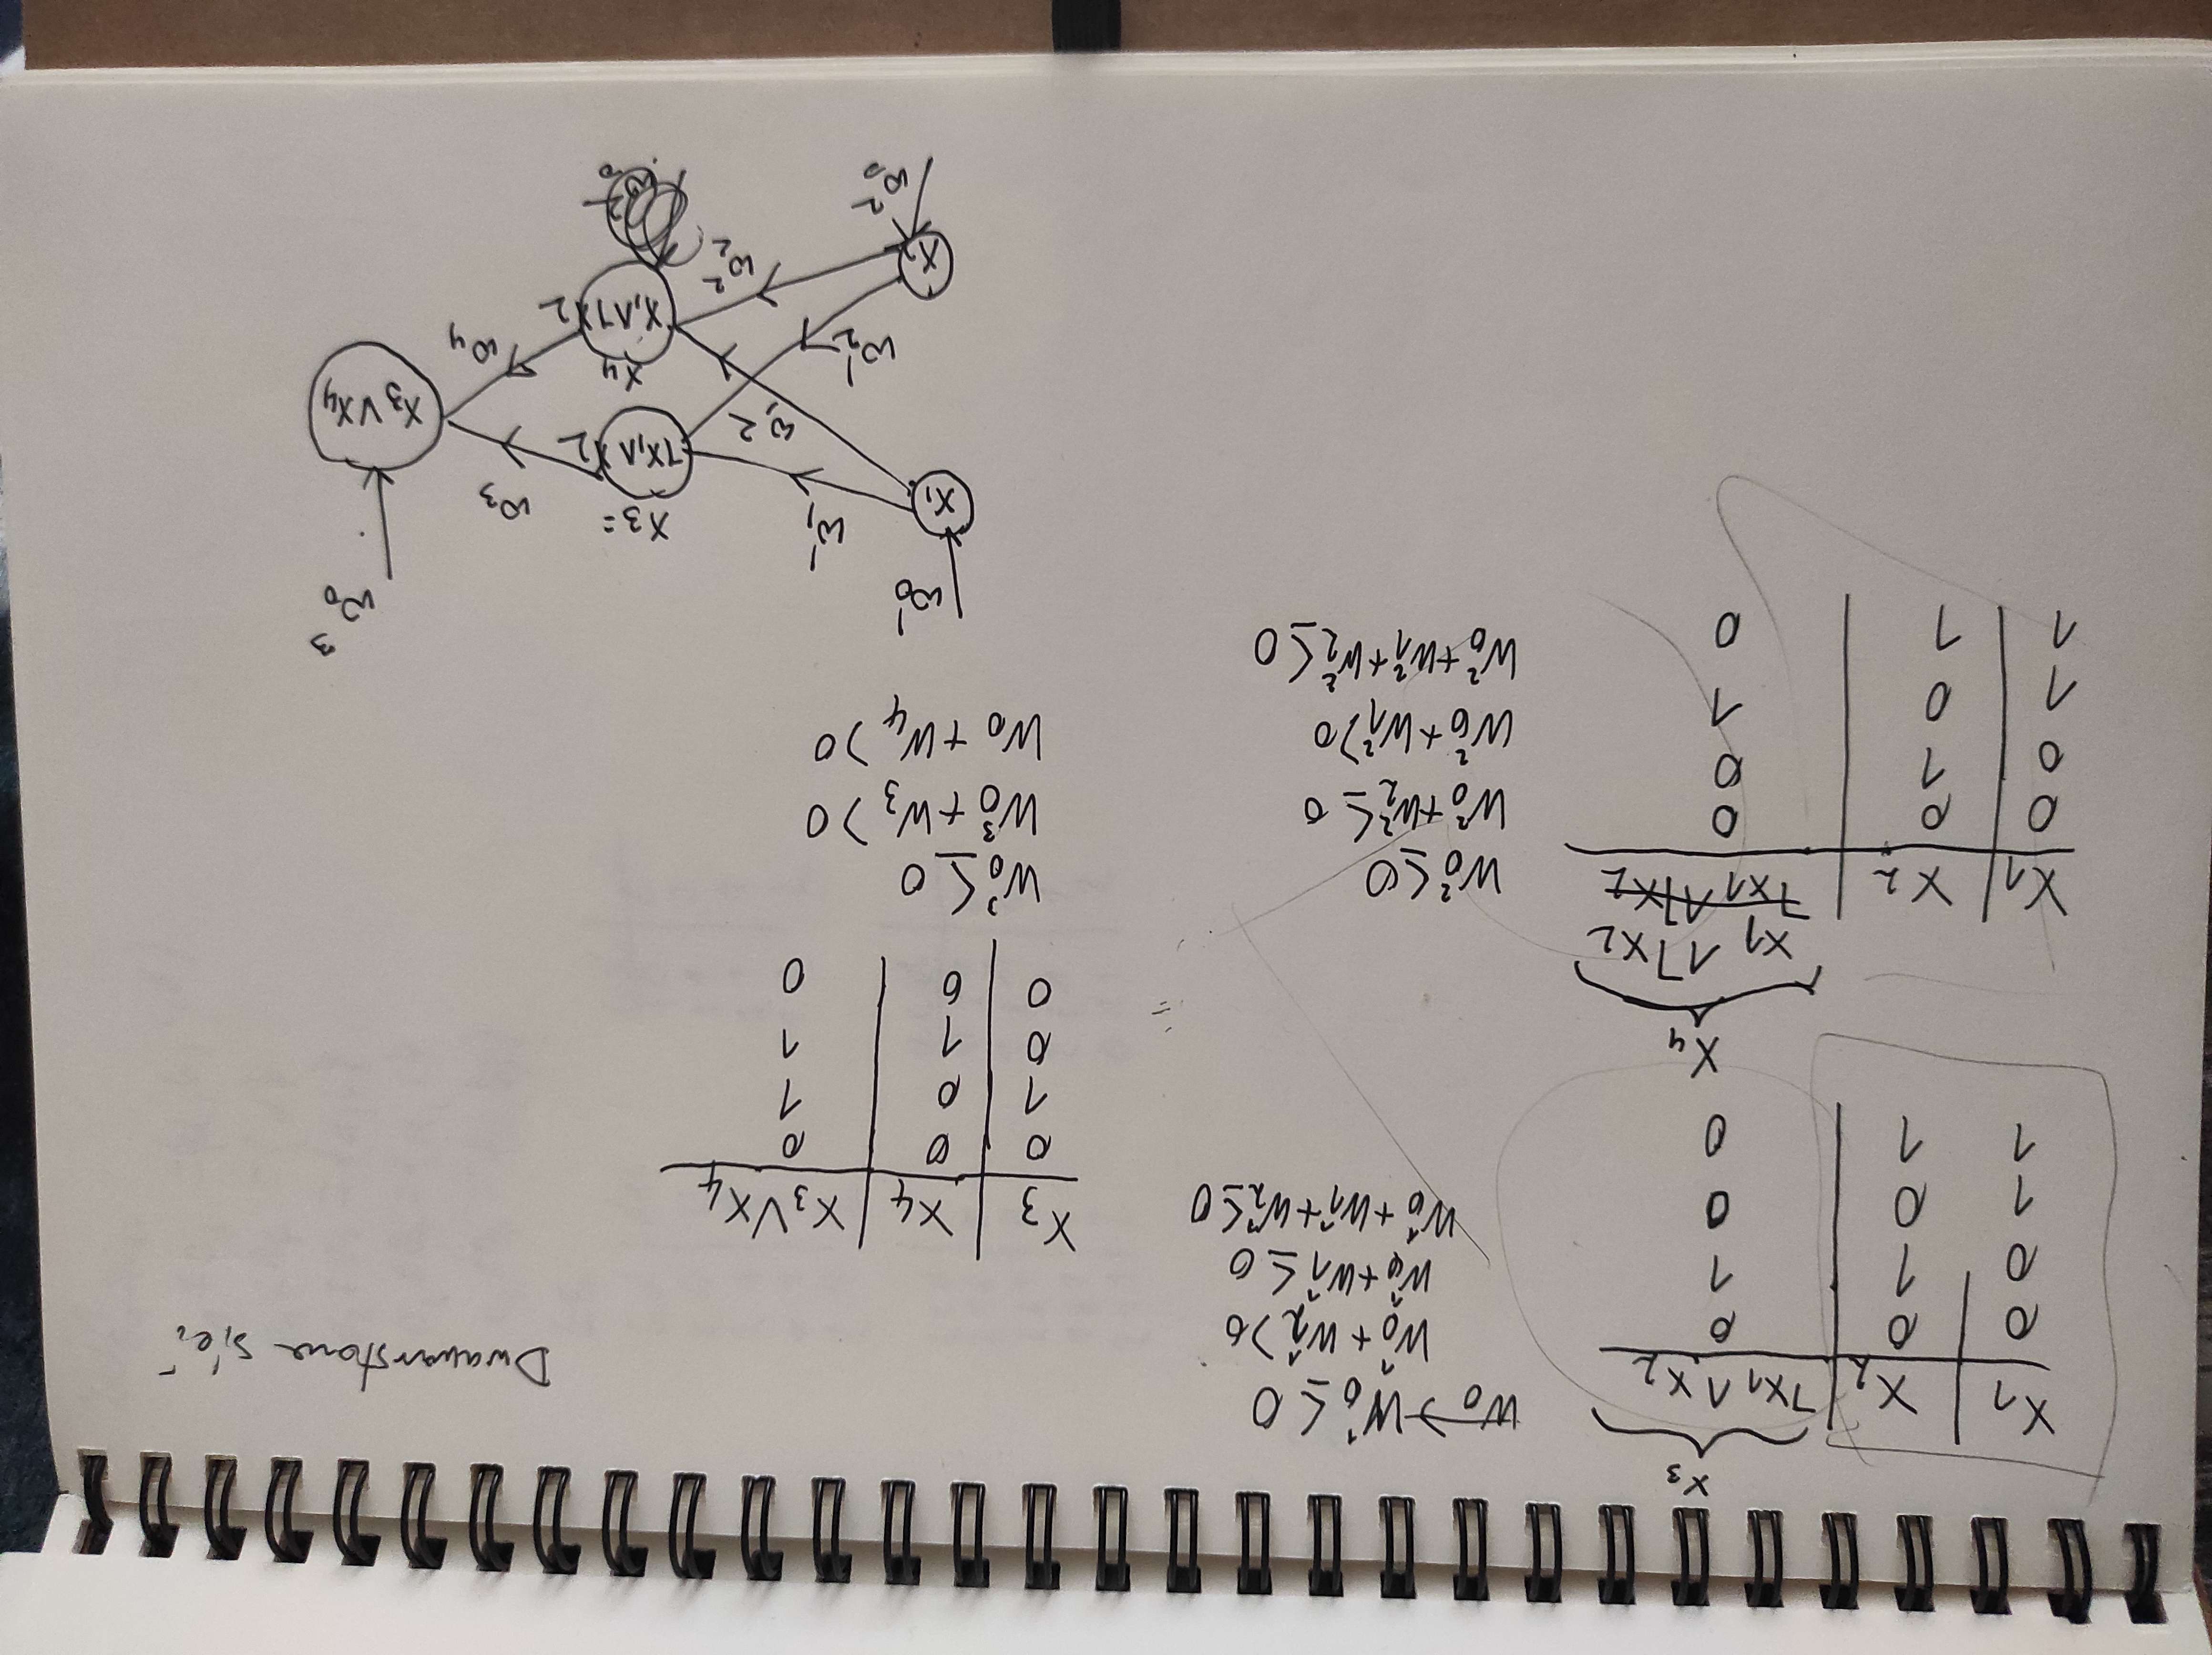 Dwuwarstwowa sieć
X₃
X₁ | X₂ | ¬X₁ ∧ X₂
0 0 0
0 1 1
1 0 0
1 1 0
W₀¹ ≤ 0
W₀¹ + W₂¹ > 0
W₀¹ + W₁¹ ≤ 0
W₀¹ + W₁¹ + W₂¹ ≤ 0
X₄
X₁ ∧ ¬X₂
X₁ | X₂ | ¬X₁ ∧ ¬X₂
0 0 0
0 1 0
1 0 1
1 1 0
W₀² ≤ 0
W₀² + W₂² ≤ 0
W₀² + W₁² > 0
W₀² + W₁² + W₂² ≤ 0
X₃ | X₄ | X₃ ∨ X₄
0 0 0
1 0 1
0 1 1
0 0 0
W₀³ ≤ 0
W₀³ + W₃ > 0
W₀ + W₄ > 0
ω₀¹
ω₀³
X₁
ω₁¹
X₃ =
¬X₁ ∧ X₂
ω₃
ω₁²
X₃ ∨ X₄
ω₂¹
X₄
X₁ ∧ ¬X₂
ω₄
X₂
ω₂²
ω₀²